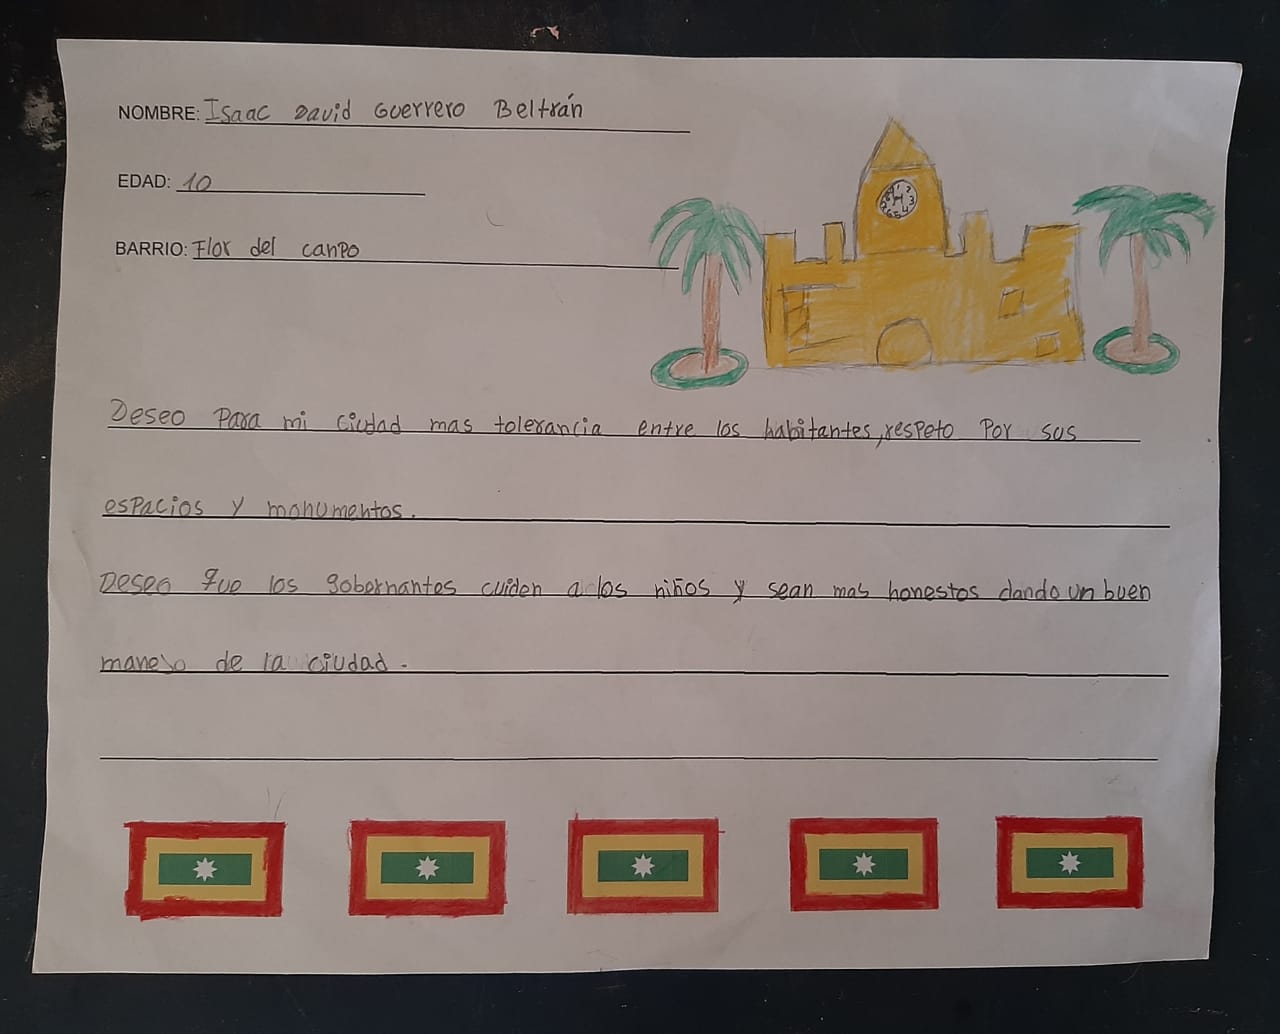 NOMBRE: Isaac David Guerrero Beltrán
EDAD: 10
BARRIO: Flor del canpo
Deseo Para mi ciudad mas tolerancia entre los habitantes, respeto Por sus
espacios y monumentos.
Deseo que los gobernantes cuiden a los niños y sean mas honestos dando un buen
manejo de la ciudad.